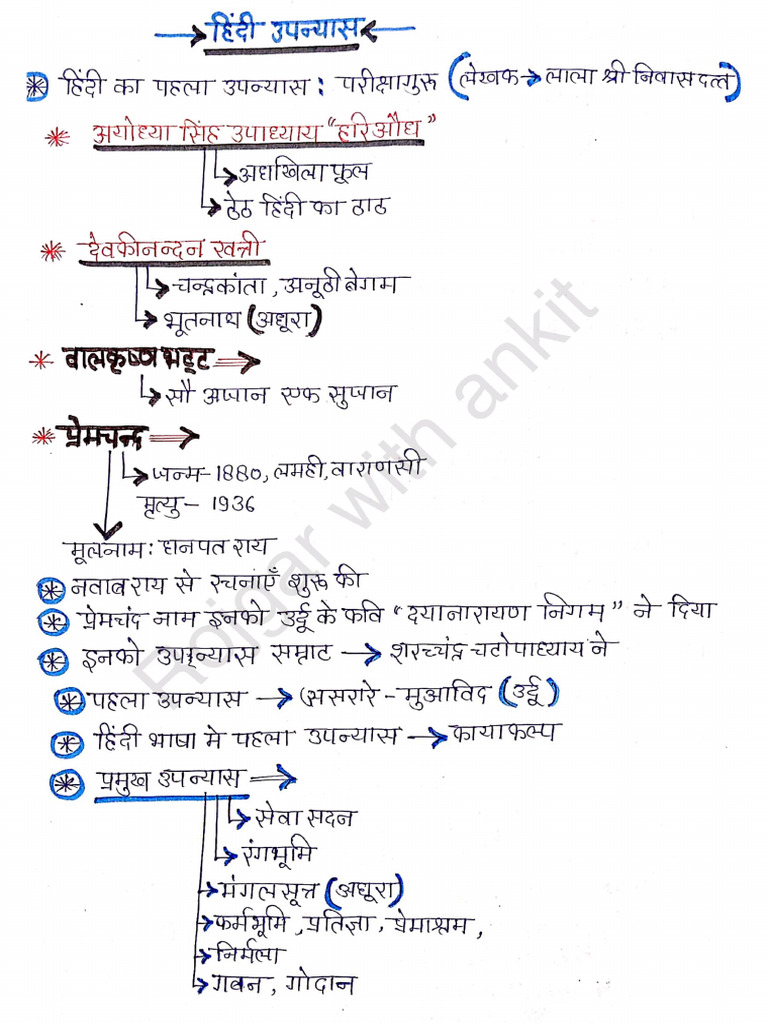 हिंदी उपन्यास
हिंदी का पहला उपन्यास : परीक्षागुरू (लेखक → लाला श्री निवास दत्त)
अयोध्या सिंह उपाध्याय "हरिऔध"
अधखिला फूल
ठेठ हिंदी का ठाठ
देवकीनन्दन खत्री
चन्द्रकांता, अनूठी बेगम
भूतनाथ (अधूरा)
बालकृष्ण भट्ट ⇒
सौ अजान एक सुजान
प्रेमचन्द्र ⇒
जन्म - 1880, लमही, वाराणसी
मृत्यु - 1936
मूलनाम : धनपत राय
नवाब राय से रचनाएँ शुरू की
प्रेमचंद नाम इनको उर्दू के कवि "दयानारायण निगम" ने दिया
इनको उपन्यास सम्राट → शरच्चंद्र चटोपाध्याय ने
पहला उपन्यास → असरारे - मुआविद (उर्दू)
हिंदी भाषा मे पहला उपन्यास → कायाकल्प
प्रमुख उपन्यास ⇒
सेवा सदन
रंगभूमि
मंगलसूत्र (अधूरा)
कर्मभूमि, प्रतिज्ञा, प्रेमाश्रम,
निर्मला
गबन, गोदान
Rojgar with ankit